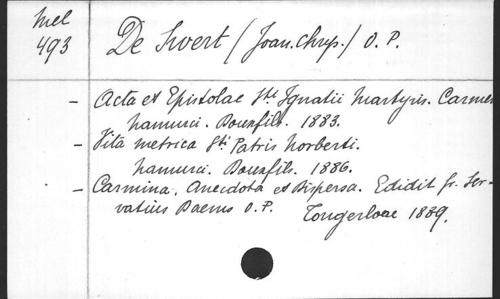 Mel
493
De Swert (Joan. Chrys.) O. P.
- Acta et Epistolae Sti Ignatii Martyris. Carmen
Namurci. Douxfils. 1883.
- Vita metrica Sti Patris Norberti.
Namurci. Douxfils. 1886.
- Carmina. Anecdota et Dispersa. Edidit fr. Ser-
vatius Daems O. P. Tongerloae 1889.